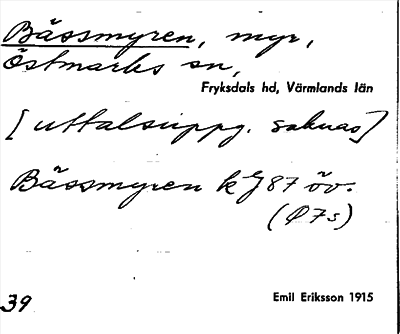 Bässmyren, myr,
Östmarks sn,
Fryksdals hd, Värmlands län
[uttalsuppg. saknas]
Bässmyren k 87 öv.
(Ø7s)
39
Emil Eriksson 1915